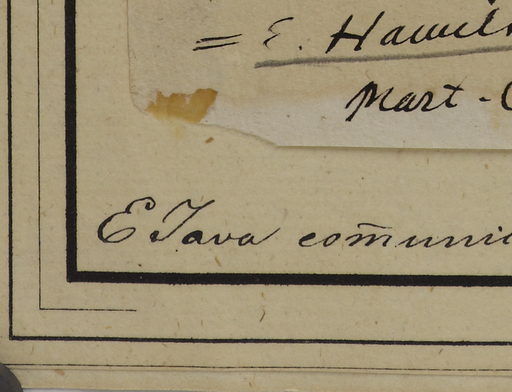 = E. Hamil
Mart - C
E Java com̄uni